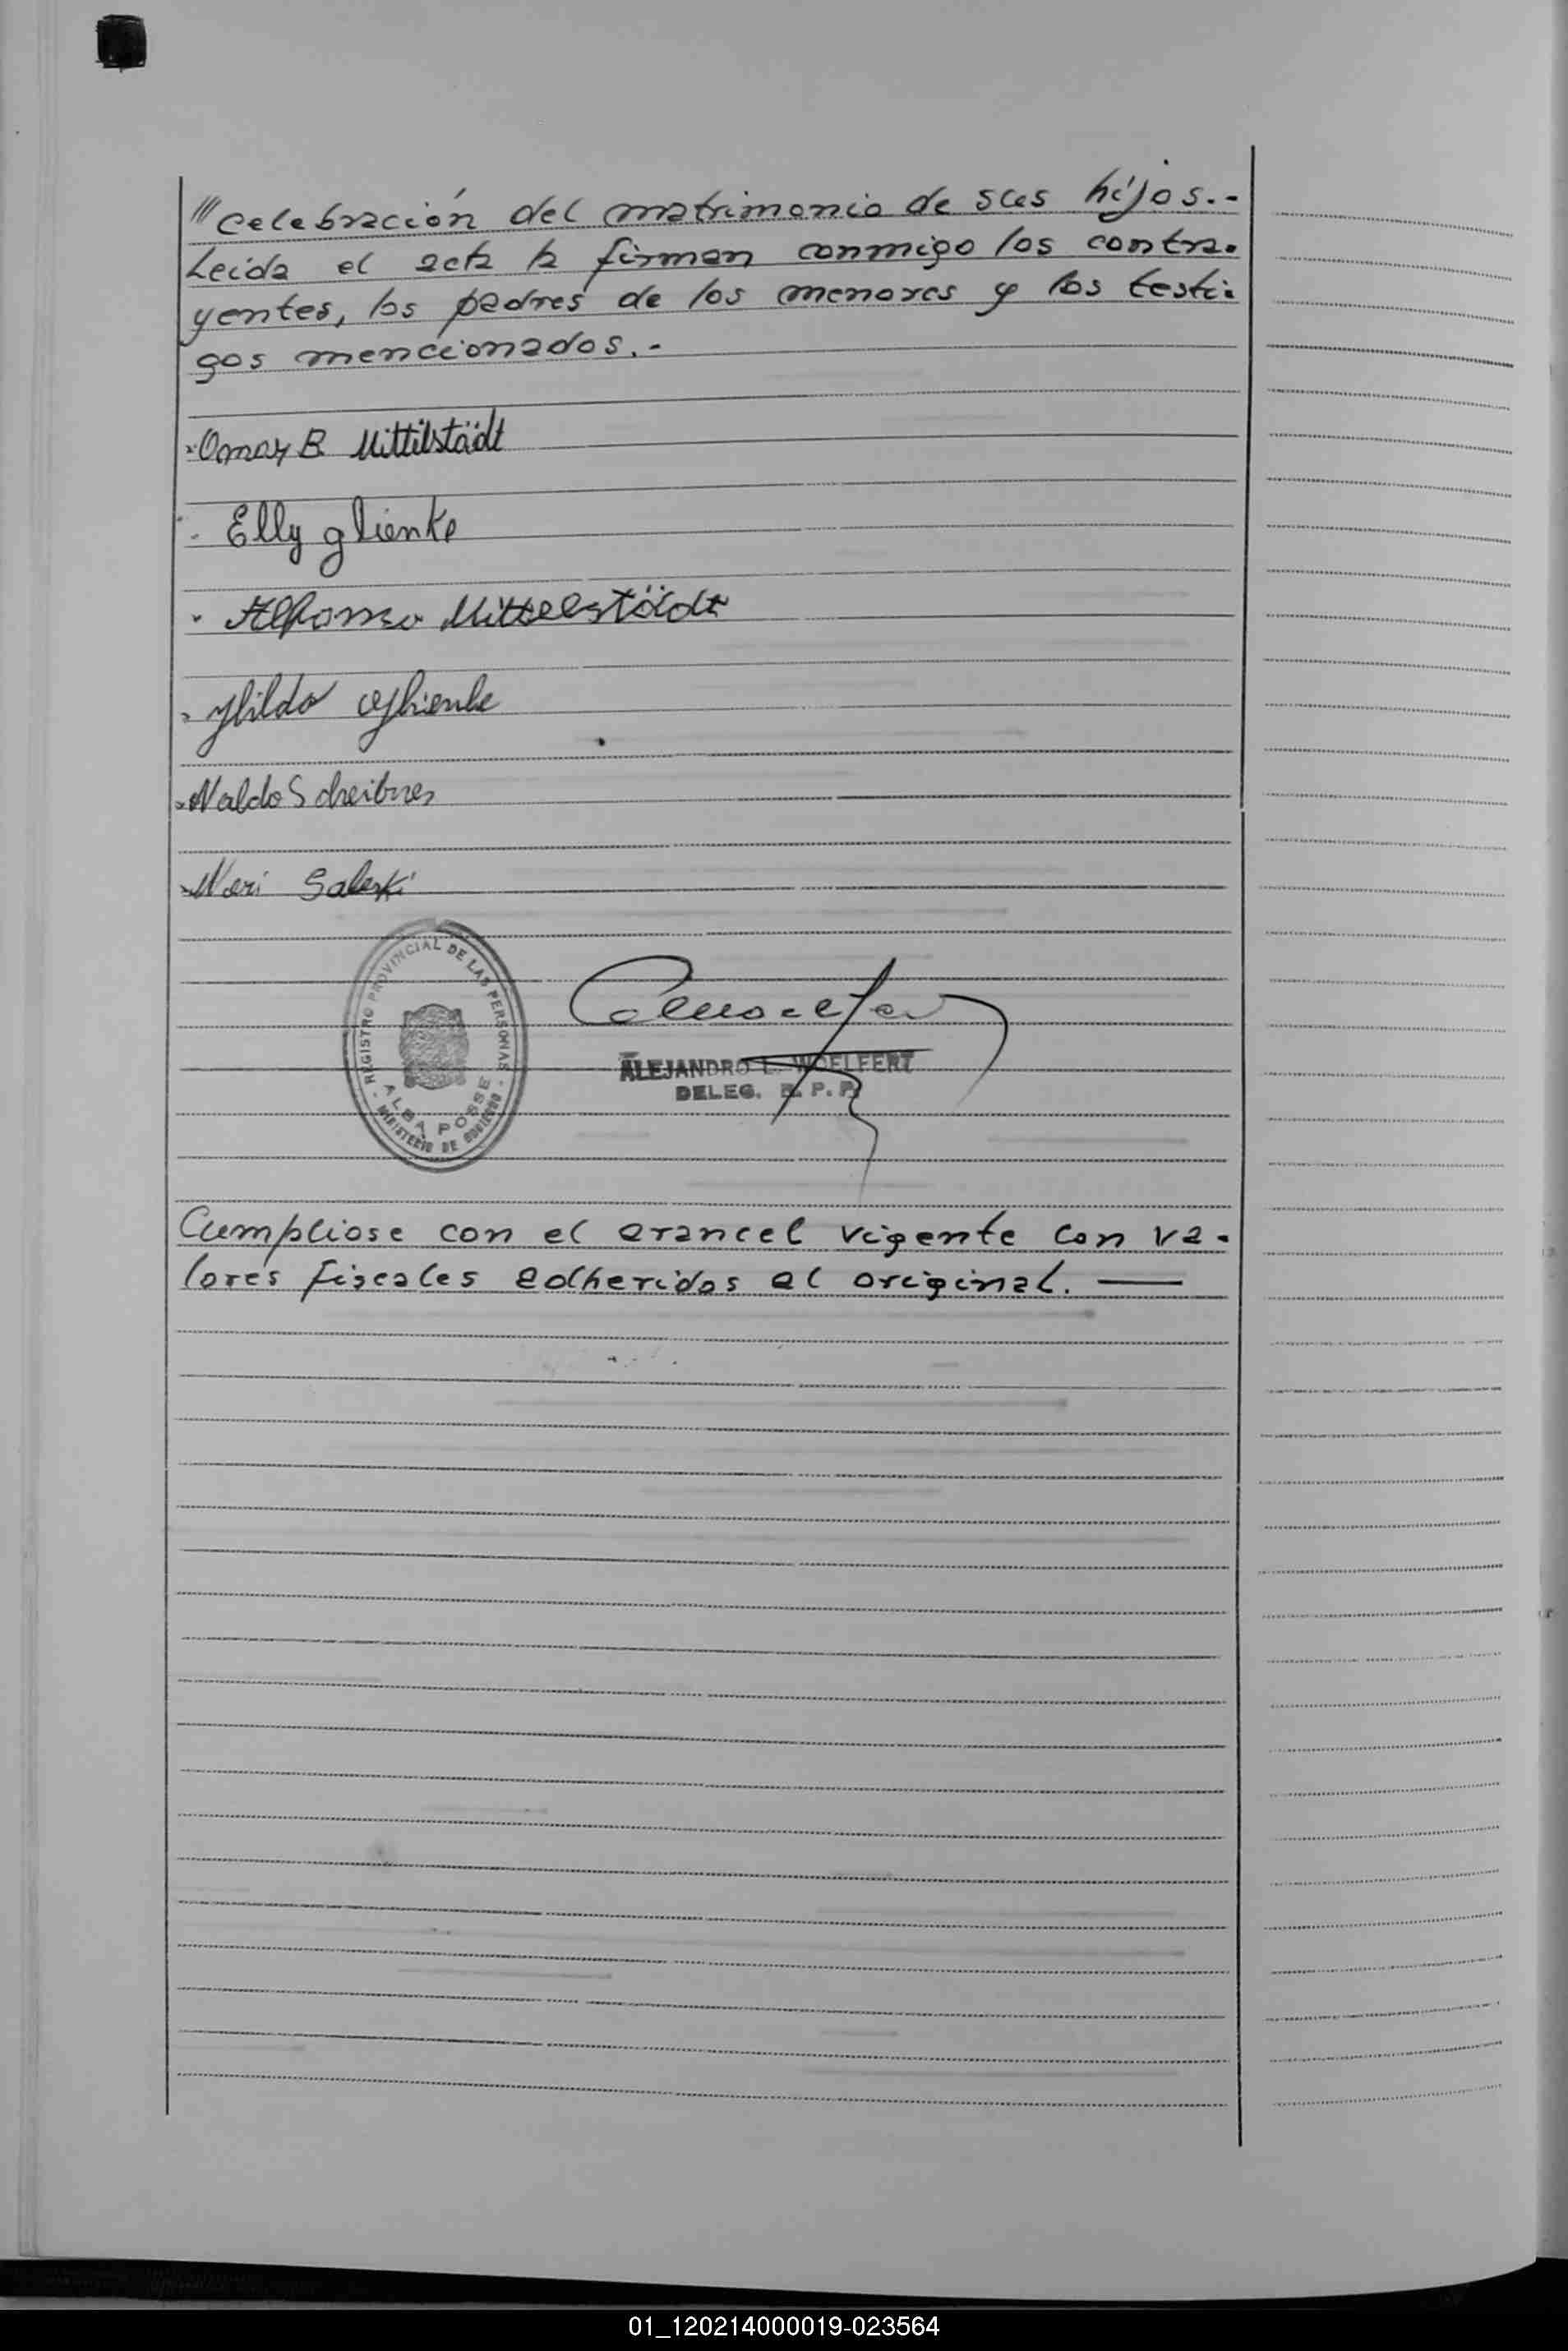 ///celebración del matrimonio de sus hijos.-
Leída el acta la firman conmigo los contra-
yentes, los padres de los menores y los testi-
gos mencionados.-
Omar B. Mittilstädt
Elly Glienke
Alfonso Mittelstädt
Hilda Glienke
Naldo Scheibner
Neri Saleski
REGISTRO PROVINCIAL DE LAS PERSONAS
ALBA POSSE
MINISTERIO DE GOBIERNO
ALEJANDRO L. WOELFERT
DELEG. R. P. P.
Cumpliose con el arancel vigente con va-
lores fiscales adheridos al original.
01_120214000019-023564